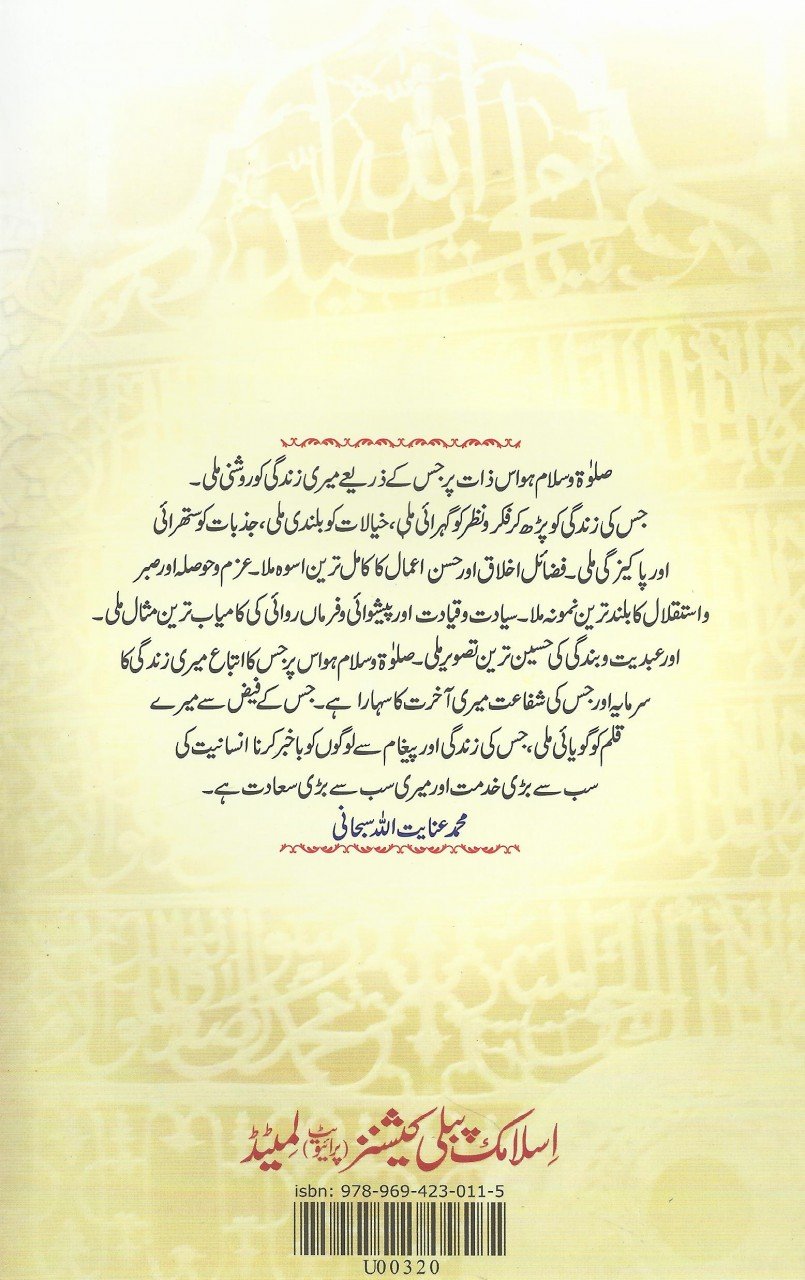 صلوٰۃ وسلام ہو اس ذات پر جس کے ذریعے میری زندگی کو روشنی ملی۔
جس کی زندگی کو پڑھ کر فکر و نظر کو گہرائی ملی، خیالات کو بلندی ملی، جذبات کو ستھرائی
اور پاکیزگی ملی۔ فضائل اخلاق اور حسن اعمال کا کامل ترین اسوہ ملا۔ عزم و حوصلہ اور صبر
و استقلال کا بلند ترین نمونہ ملا۔ سیادت و قیادت اور پیشوائی و فرماں روائی کی کامیاب ترین مثال ملی۔
اور عبدیت و بندگی کی حسین ترین تصویر ملی۔ صلوٰۃ وسلام ہو اس پر جس کا اتباع میری زندگی کا
سرمایہ اور جس کی شفاعت میری آخرت کا سہارا ہے۔ جس کے فیض سے میرے
قلم کو گویائی ملی، جس کی زندگی اور پیغام سے لوگوں کو باخبر کرنا انسانیت کی
سب سے بڑی خدمت اور میری سب سے بڑی سعادت ہے۔
محمد عنایت اللہ سبحانی
اسلامک پبلی کیشنز (پرائیویٹ) لمیٹڈ
isbn: 978-969-423-011-5
U00320